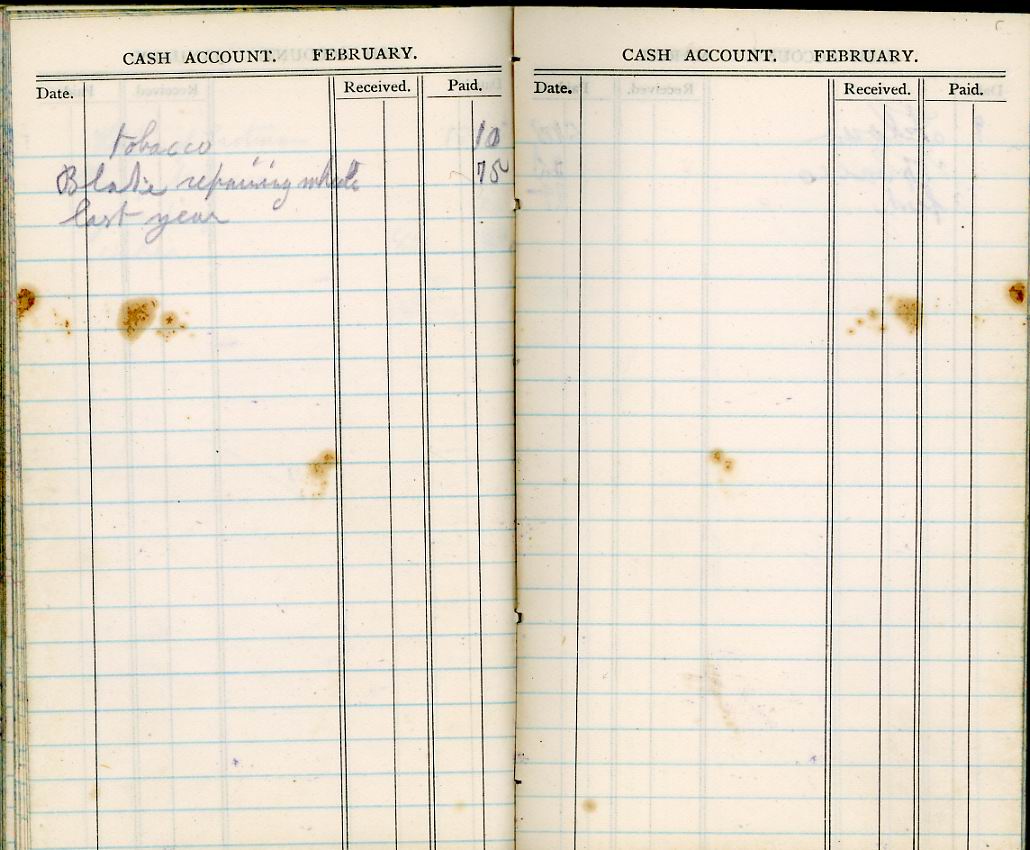 CASH ACCOUNT. FEBRUARY.
Date. Received. Paid.
tobacco 10
repairing 75
last year
CASH ACCOUNT. FEBRUARY.
Date. Received. Paid.